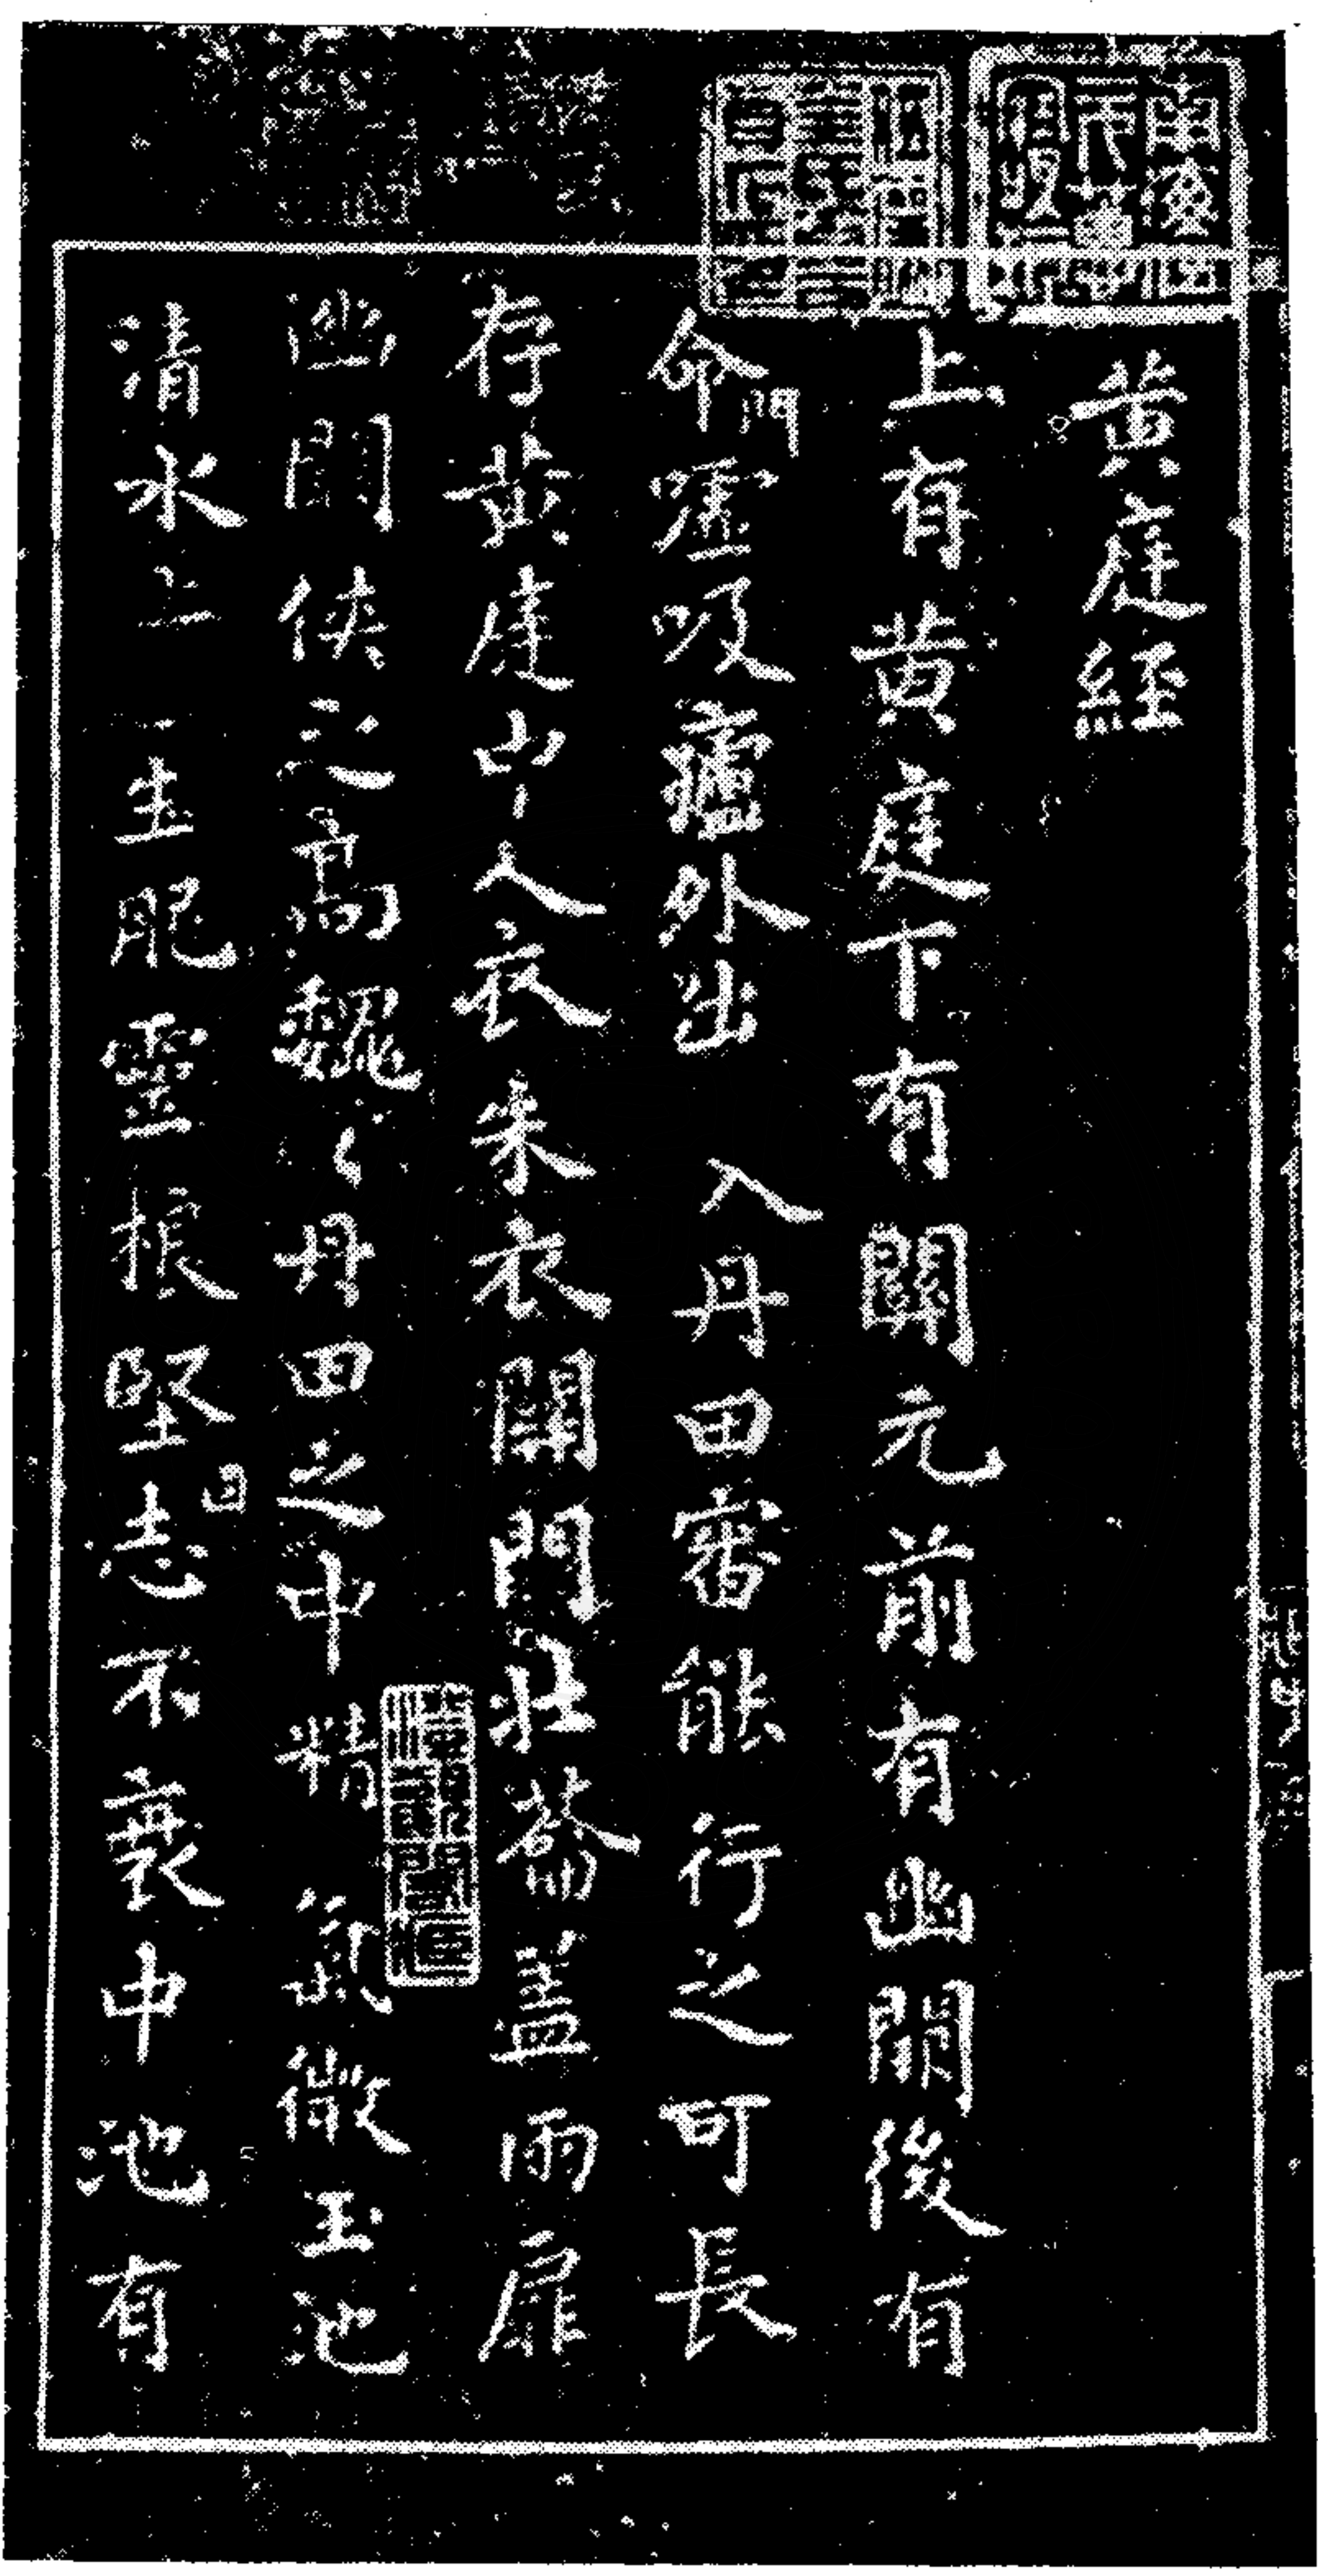 黄庭經
上有黄庭下有關元前有幽闕後有
命門噓吸廬外出入丹田審能行之可長
存黄庭中人衣朱衣關門壯蘥蓋兩扉
幽闕俠之高魏〻丹田之中精氣微玉池
清水上生肥靈根堅志不衰中池有